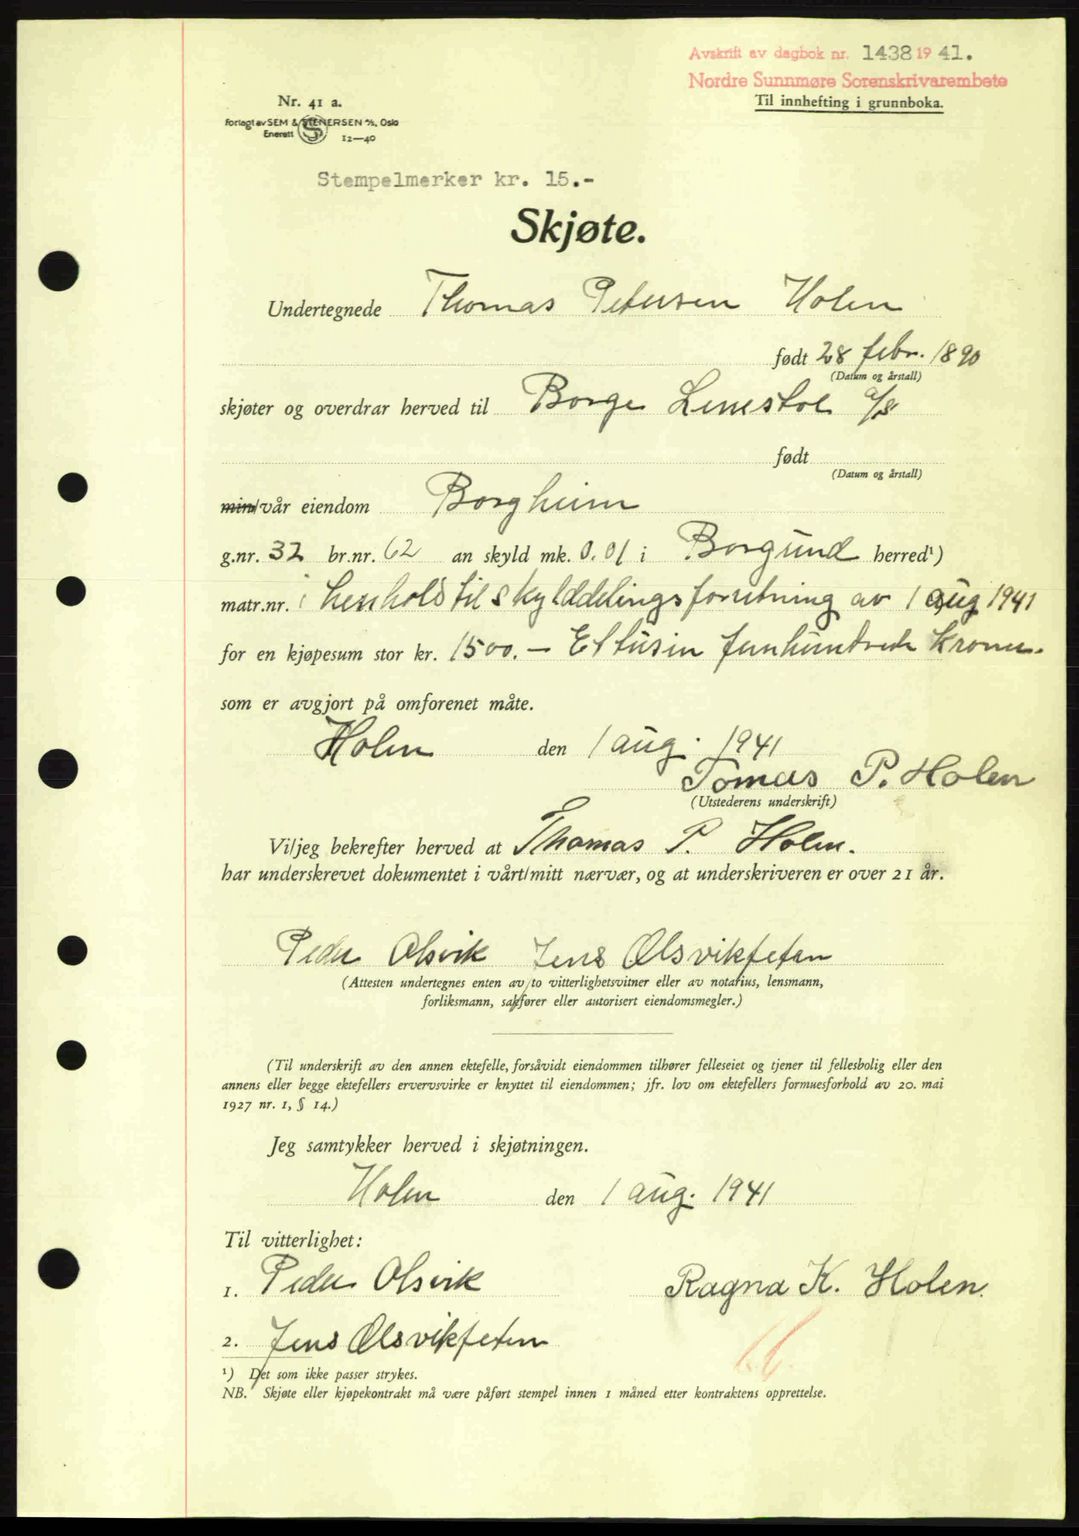 Avskrift av dagbok nr. 1438 1941.
Nordre Sunnmøre Sorenskrivarembete
Til innhefting i grunnboka.
Nr. 41 a.
Forlagt av SEM & STENERSEN A/S, Oslo
Enerett S 12—40
Stempelmerker kr. 15.-
Skjøte.
Undertegnede Thomas Petersen Holen
født 28 febr. 1890
(Datum og årstall)
skjøter og overdrar herved til Borge Lenestol a/s
født
(Datum og årstall)
min/vår eiendom Borgheim
g.nr. 32 br.nr. 62 an skyld mk. 0.01 i Borgund herred¹)
matr.nr. i henhold til skylddelingsforretning av 1 aug 1941
for en kjøpesum stor kr. 1500.— Ettusin femhundrede kroner.
som er avgjort på omforenet måte.
Holen den 1 aug. 1941
Tomas P. Holen
(Utstederens underskrift)
Vi/jeg bekrefter herved at Thomas P. Holen.
har underskrevet dokumentet i vårt/mitt nærvær, og at underskriveren er over 21 år.
Peder Olsvik Jens Olsvikfeten
(Attesten undertegnes enten av to vitterlighetsvitner eller av notarius, lensmann,
forliksmann, sakfører eller autorisert eiendomsmegler.)
(Til underskrift av den annen ektefelle, forsåvidt eiendommen tilhører felleseiet og tjener til fellesbolig eller den
annens eller begge ektefellers ervervsvirke er knyttet til eiendommen; jfr. lov om ektefellers formuesforhold av 20. mai
1927 nr. 1, § 14.)
Jeg samtykker herved i skjøtningen.
Holen den 1 aug. 1941
Til vitterlighet:
1. Peder Olsvik Ragna K. Holen.
2. Jens Olsvikfeten
¹) Det som ikke passer strykes.
NB. Skjøte eller kjøpekontrakt må være påført stempel innen 1 måned etter kontraktens opprettelse.